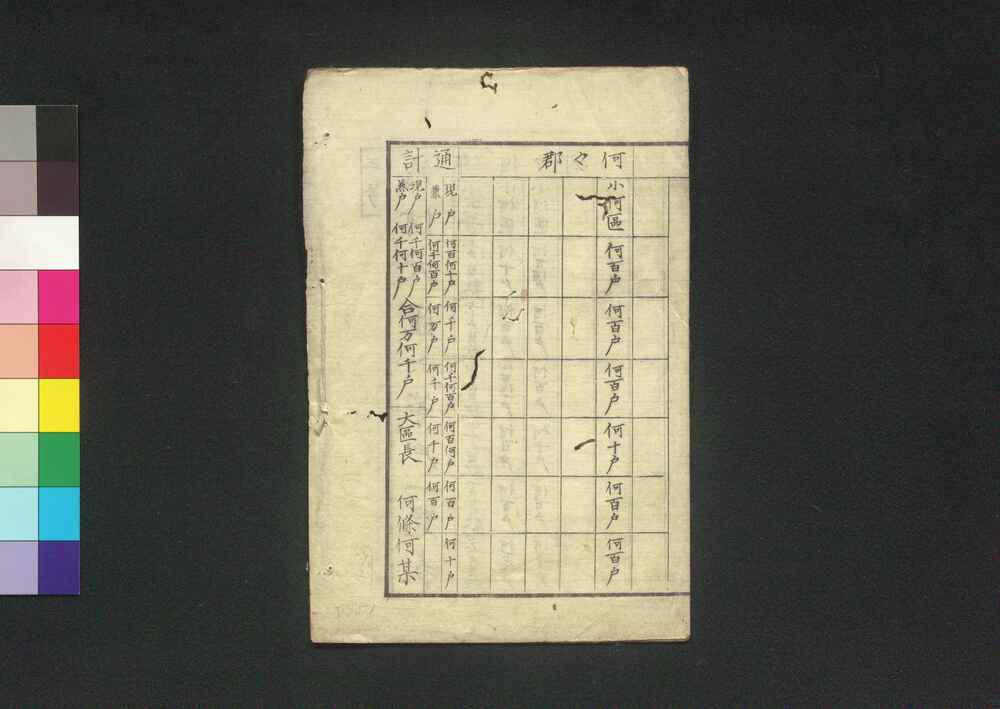 何々郡
小何區 何百戸 何百戸 何百戸 何十戸 何百戸 何百戸
通計
現戸 何百何十戸 何千戸 何千何百戸 何百何戸 何百戸 何十戸
兼戸 何千何百戸 何万戸 何千戸 何千戸 何百戸
現戸 何千何百戸
兼戸 何千何十戸
合何万何千戸 大區長 何條何某